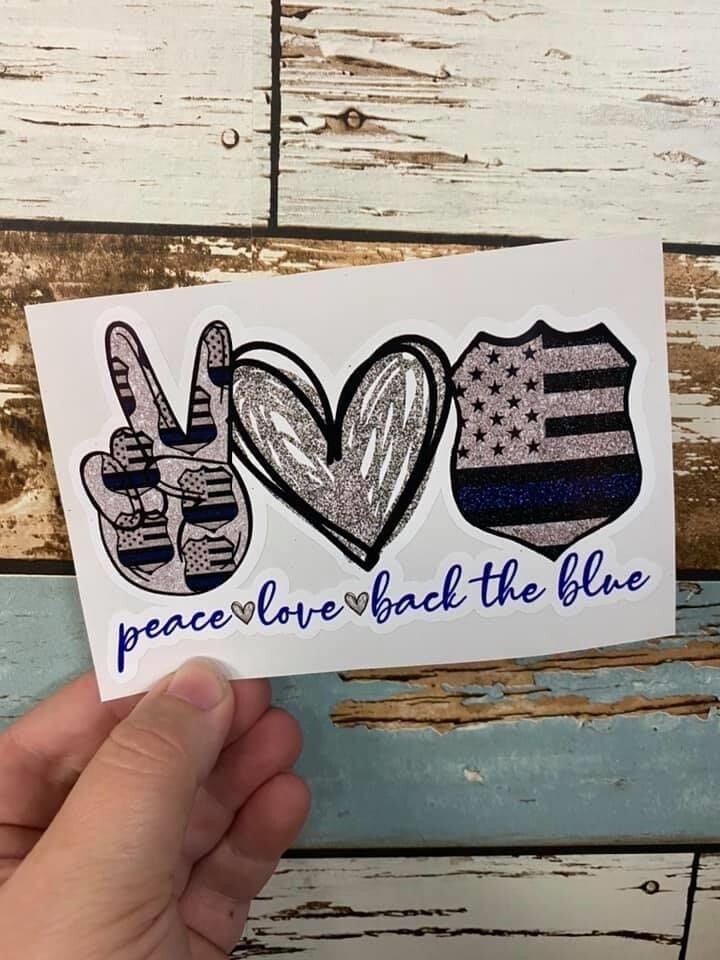 peace love back the blue